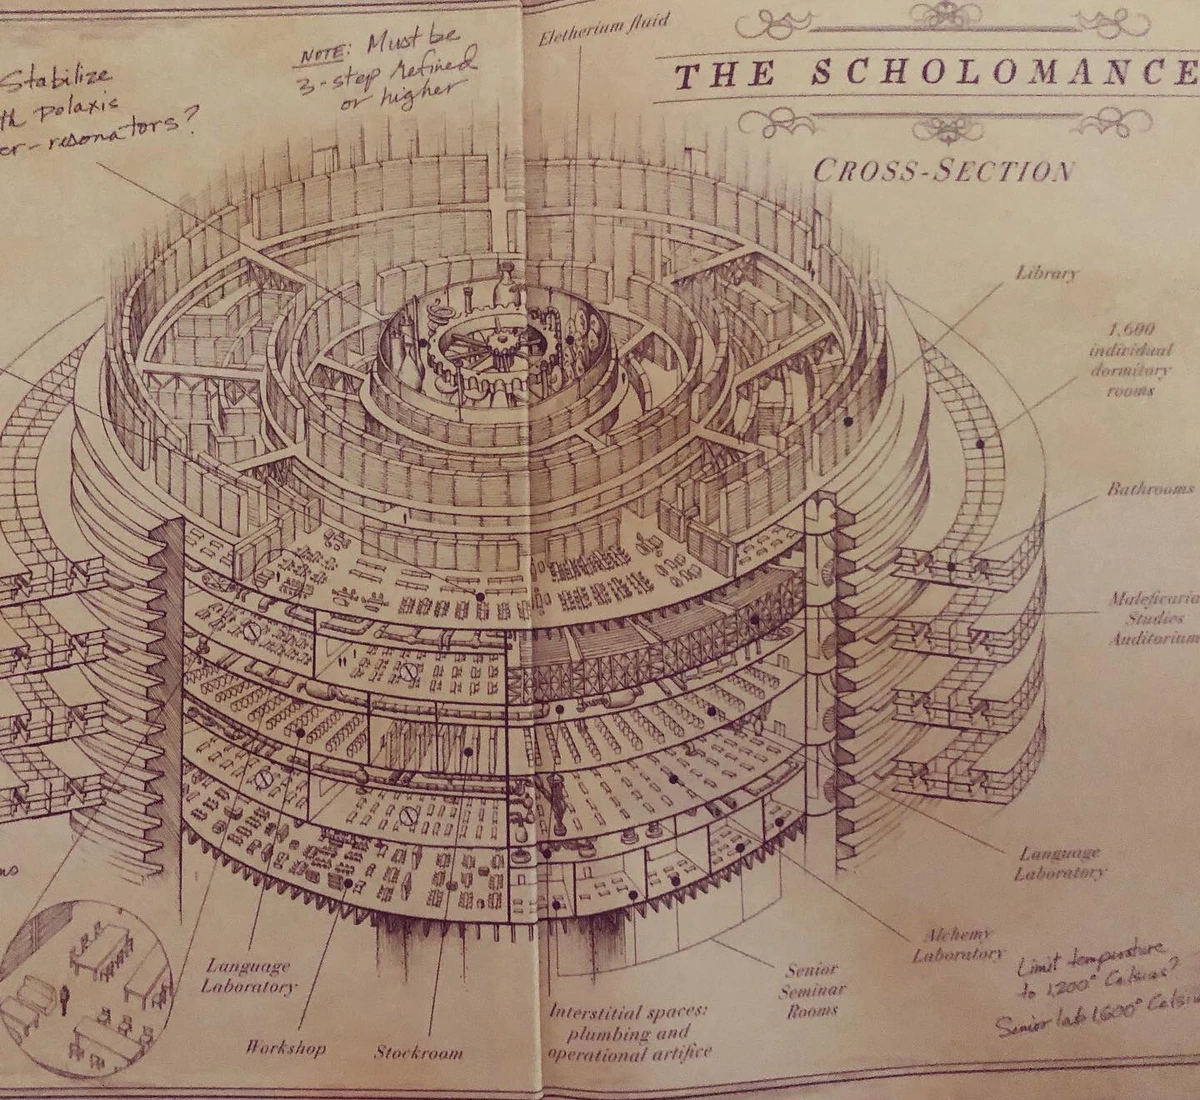 Stabilize
polaxis
resonators?
NOTE: Must be
3-step refined
or higher
Eletherium fluid
THE SCHOLOMANCE
CROSS-SECTION
Library
1,600
individual
dormitory
rooms
Bathrooms
Maleficaria
Studies
Auditorium
Language
Laboratory
Alchemy
Laboratory
Limit temperature
to 1,200° Celsius?
Senior lab 1,600° Celsius
Senior
Seminar
Rooms
Interstitial spaces:
plumbing and
operational artifice
Language
Laboratory
Workshop
Stockroom